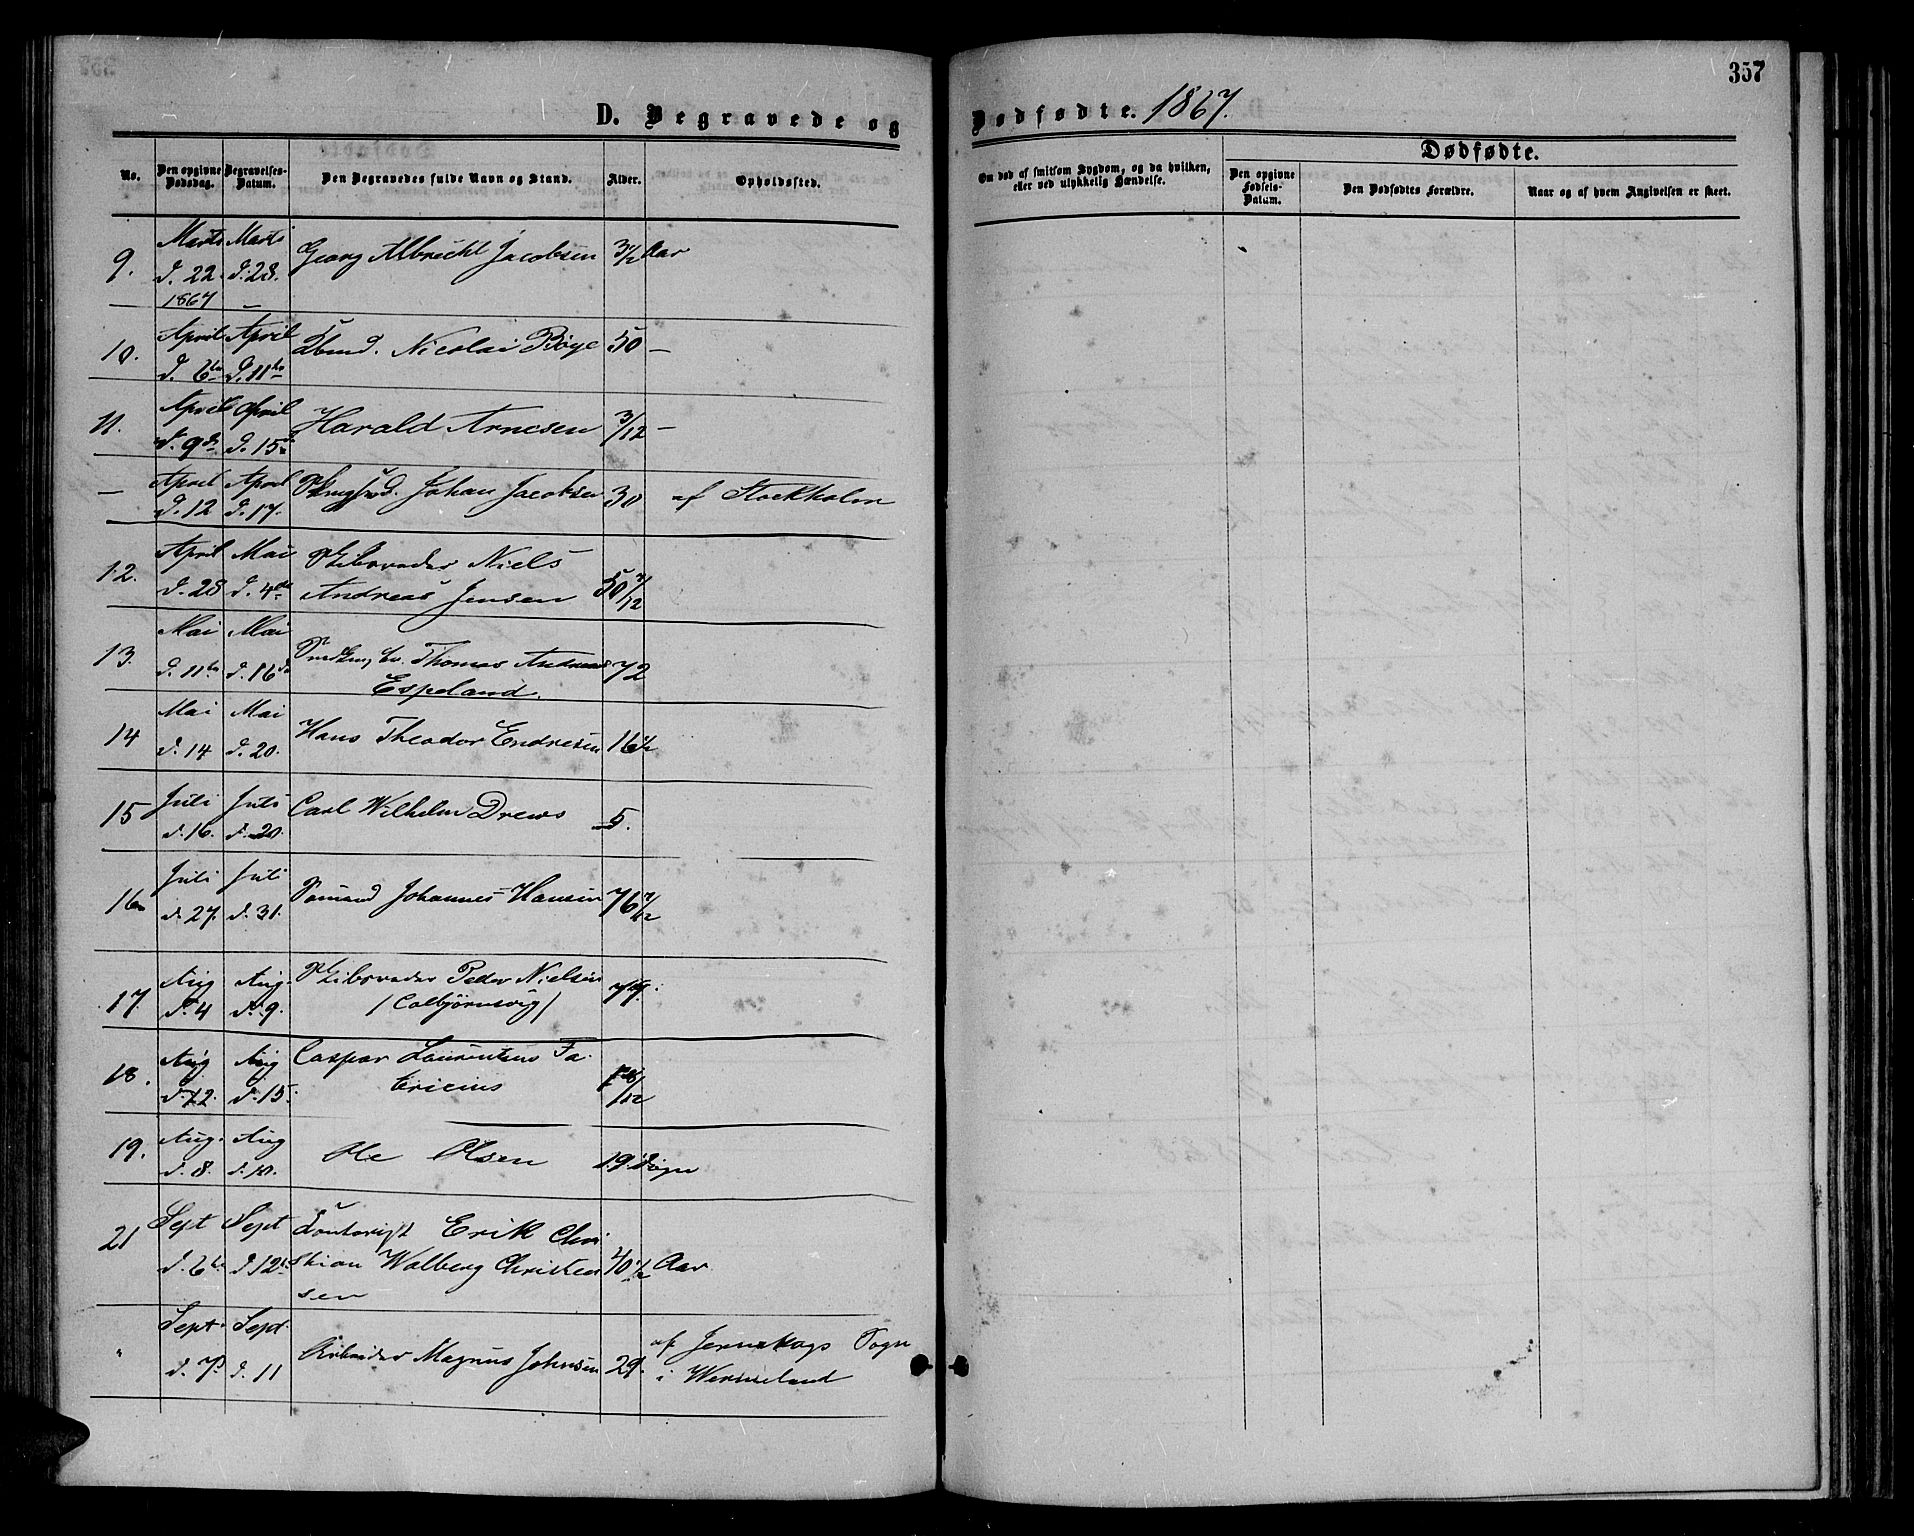 357
D. Begravede og Dødfødte. 1867.
No.
Den opgivne Dødsdag.
Begravelses-Datum.
Den Begravedes fulde Navn og Stand.
Alder.
Opholdssted.
Om død af smitsom Sygdom, og da hvilken, eller ved ulykkelig Hændelse.
Dødfødte.
Den opgivne Fødsels-Datum.
Den Dødfødtes Forældre.
Naar og af hvem Angivelsen er skeet.
9. Marts d. 22. 1867 Marts d. 28. Georg Albrecht Jacobsen 3½ Aar
10. April d. 6te April d. 11te Kbmd. Nicolai Bøye 50 —
11. April d. 9de April d. 15de Harald Arnesen 3/12 —
— April d. 12 April d. 17. Johan Jacobsen 30 af Stockholm
12. April d. 28 Mai d. 4de Niels
Andreas Jensen 50 7/12
13. Mai d. 11te Mai d. 16de Thomas Andreas 72
Espeland.
14 Mai d. 14 Mai d. 20. Hans Theodor Endresen 16½
15 Juli d. 16. Juli d. 20. Carl Wilhelm Drews 5.
16 Juli d. 27. Juli d. 31. Sømand Johannes Hansen 76 7/12
17. Aug d. 4 Aug. d. 9. Peder Nielsen
/Colbjørnsvig/
18. Aug d. 12. Aug d. 15. Caspar Laurentius Fa-
bricius
19. Aug. d. 8. Aug d. 10. Ole Olsen 19 Døgn
21 Sept d. 6te Sept d. 12te Kontorist Erik Chri-
stian Walberg Christen 40½ Aar
sen
" Sept. d. 7. Sept. d. 11 Arbeider Magnus Johnsen 29. af Jernskogs Sogn
i Wermeland